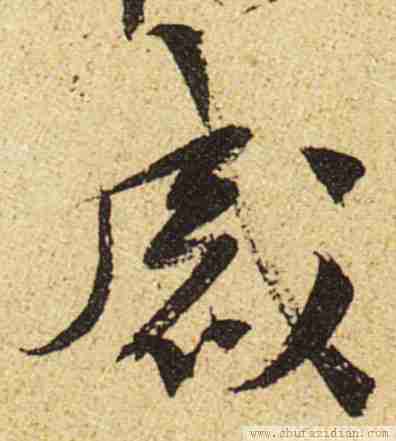 感
www.shufazidian.com